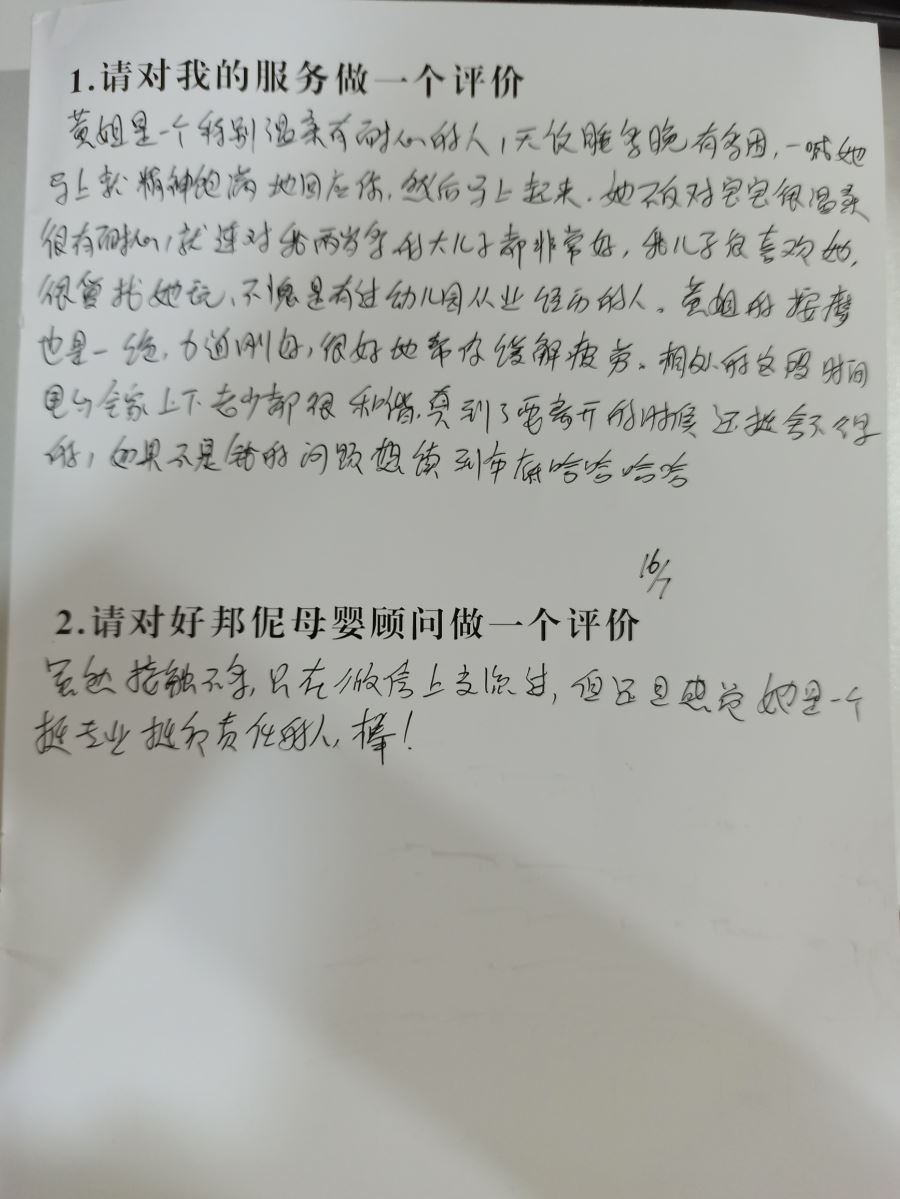 1.请对我的服务做一个评价
黄姐是一个特别温柔有耐心的人,无论睡多晚,有多困,一喊她
马上就精神饱满地回应你,然后马上起来.她不仅对宝宝很温柔
很有耐心,就连对我两岁多的大儿子都非常好,我儿子很喜欢她,
很爱找她玩、不愧是有过幼儿园从业经历的人。黄姐的按摩
也是一绝,力道刚好,很好地帮你缓解疲劳。相处的这段时间
与全家上下老少都很和谐.真到了要离开的时候还挺舍不得
的,如果不是钱的问题想续到年底哈哈哈哈
16/7
2.请对好邦伲母婴顾问做一个评价
虽然接触不多,只在微信上交流过,但还是感觉她是一个
挺专业挺负责任的人,棒!